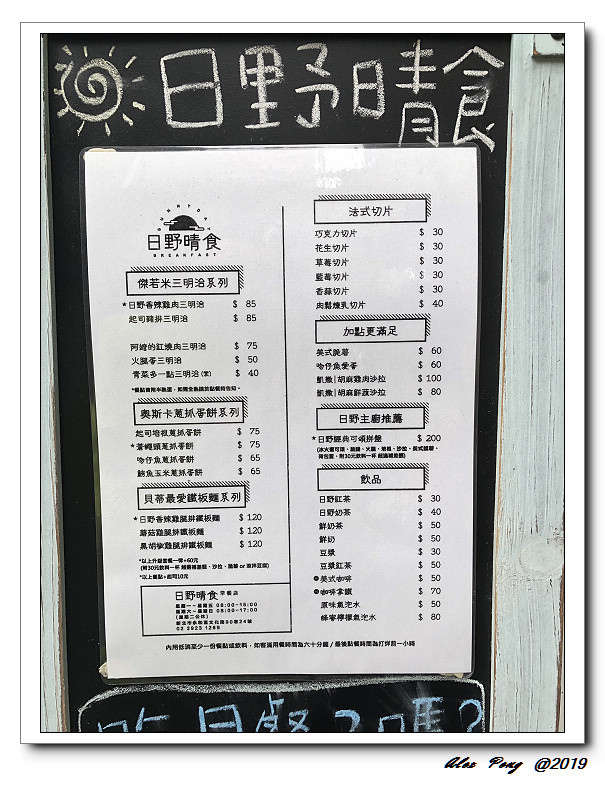 日野晴食
SUNNYDAY
日野晴食
BREAKFAST
傑若米三明治系列
*日野香辣雞肉三明治 $ 85
起司豬排三明治 $ 85
阿嬤的紅燒肉三明治 $ 75
火腿蛋三明治 $ 50
青菜多一點三明治(素) $ 40
奧斯卡蔥抓蛋餅系列
起司培根蔥抓蛋餅 $ 75
*蒼蠅頭蔥抓蛋餅 $ 75
吻仔魚蔥抓蛋餅 $ 65
鮪魚玉米蔥抓蛋餅 $ 65
貝蒂最愛鐵板麵系列
*日野香辣雞腿排鐵板麵 $ 120
蘑菇雞腿排鐵板麵 $ 120
黑胡椒雞腿排鐵板麵 $ 120
*以上升級套餐一律+60元
*以上餐點+起司10元
日野晴食 早餐店
星期一~星期五 08:00-16:00
星期六~星期日 08:00-17:00
新北市永和區文化路90巷24號
02 2923 1289
法式切片
巧克力切片 $ 30
花生切片 $ 30
草莓切片 $ 30
藍莓切片 $ 30
香蒜切片 $ 30
肉鬆煉乳切片 $ 40
加點更滿足
美式脆薯 $ 60
吻仔魚愛蛋 $ 60
凱撒|胡麻雞肉沙拉 $ 100
凱撒|胡麻鮮蔬沙拉 $ 80
日野主廚推薦
*日野經典可頌拼盤 $ 200
飲品
日野紅茶 $ 30
日野奶茶 $ 40
鮮奶茶 $ 50
鮮奶 $ 50
豆漿 $ 30
豆漿紅茶 $ 50
美式咖啡 $ 50
咖啡拿鐵 $ 70
原味氣泡水 $ 50
蜂蜜檸檬氣泡水 $ 80
內用低消至少一份餐點或飲料，如客滿用餐時間為六十分鐘 / 最後點餐時間為打烊前一小時
吃早餐了嗎?
Alex Pong @2019